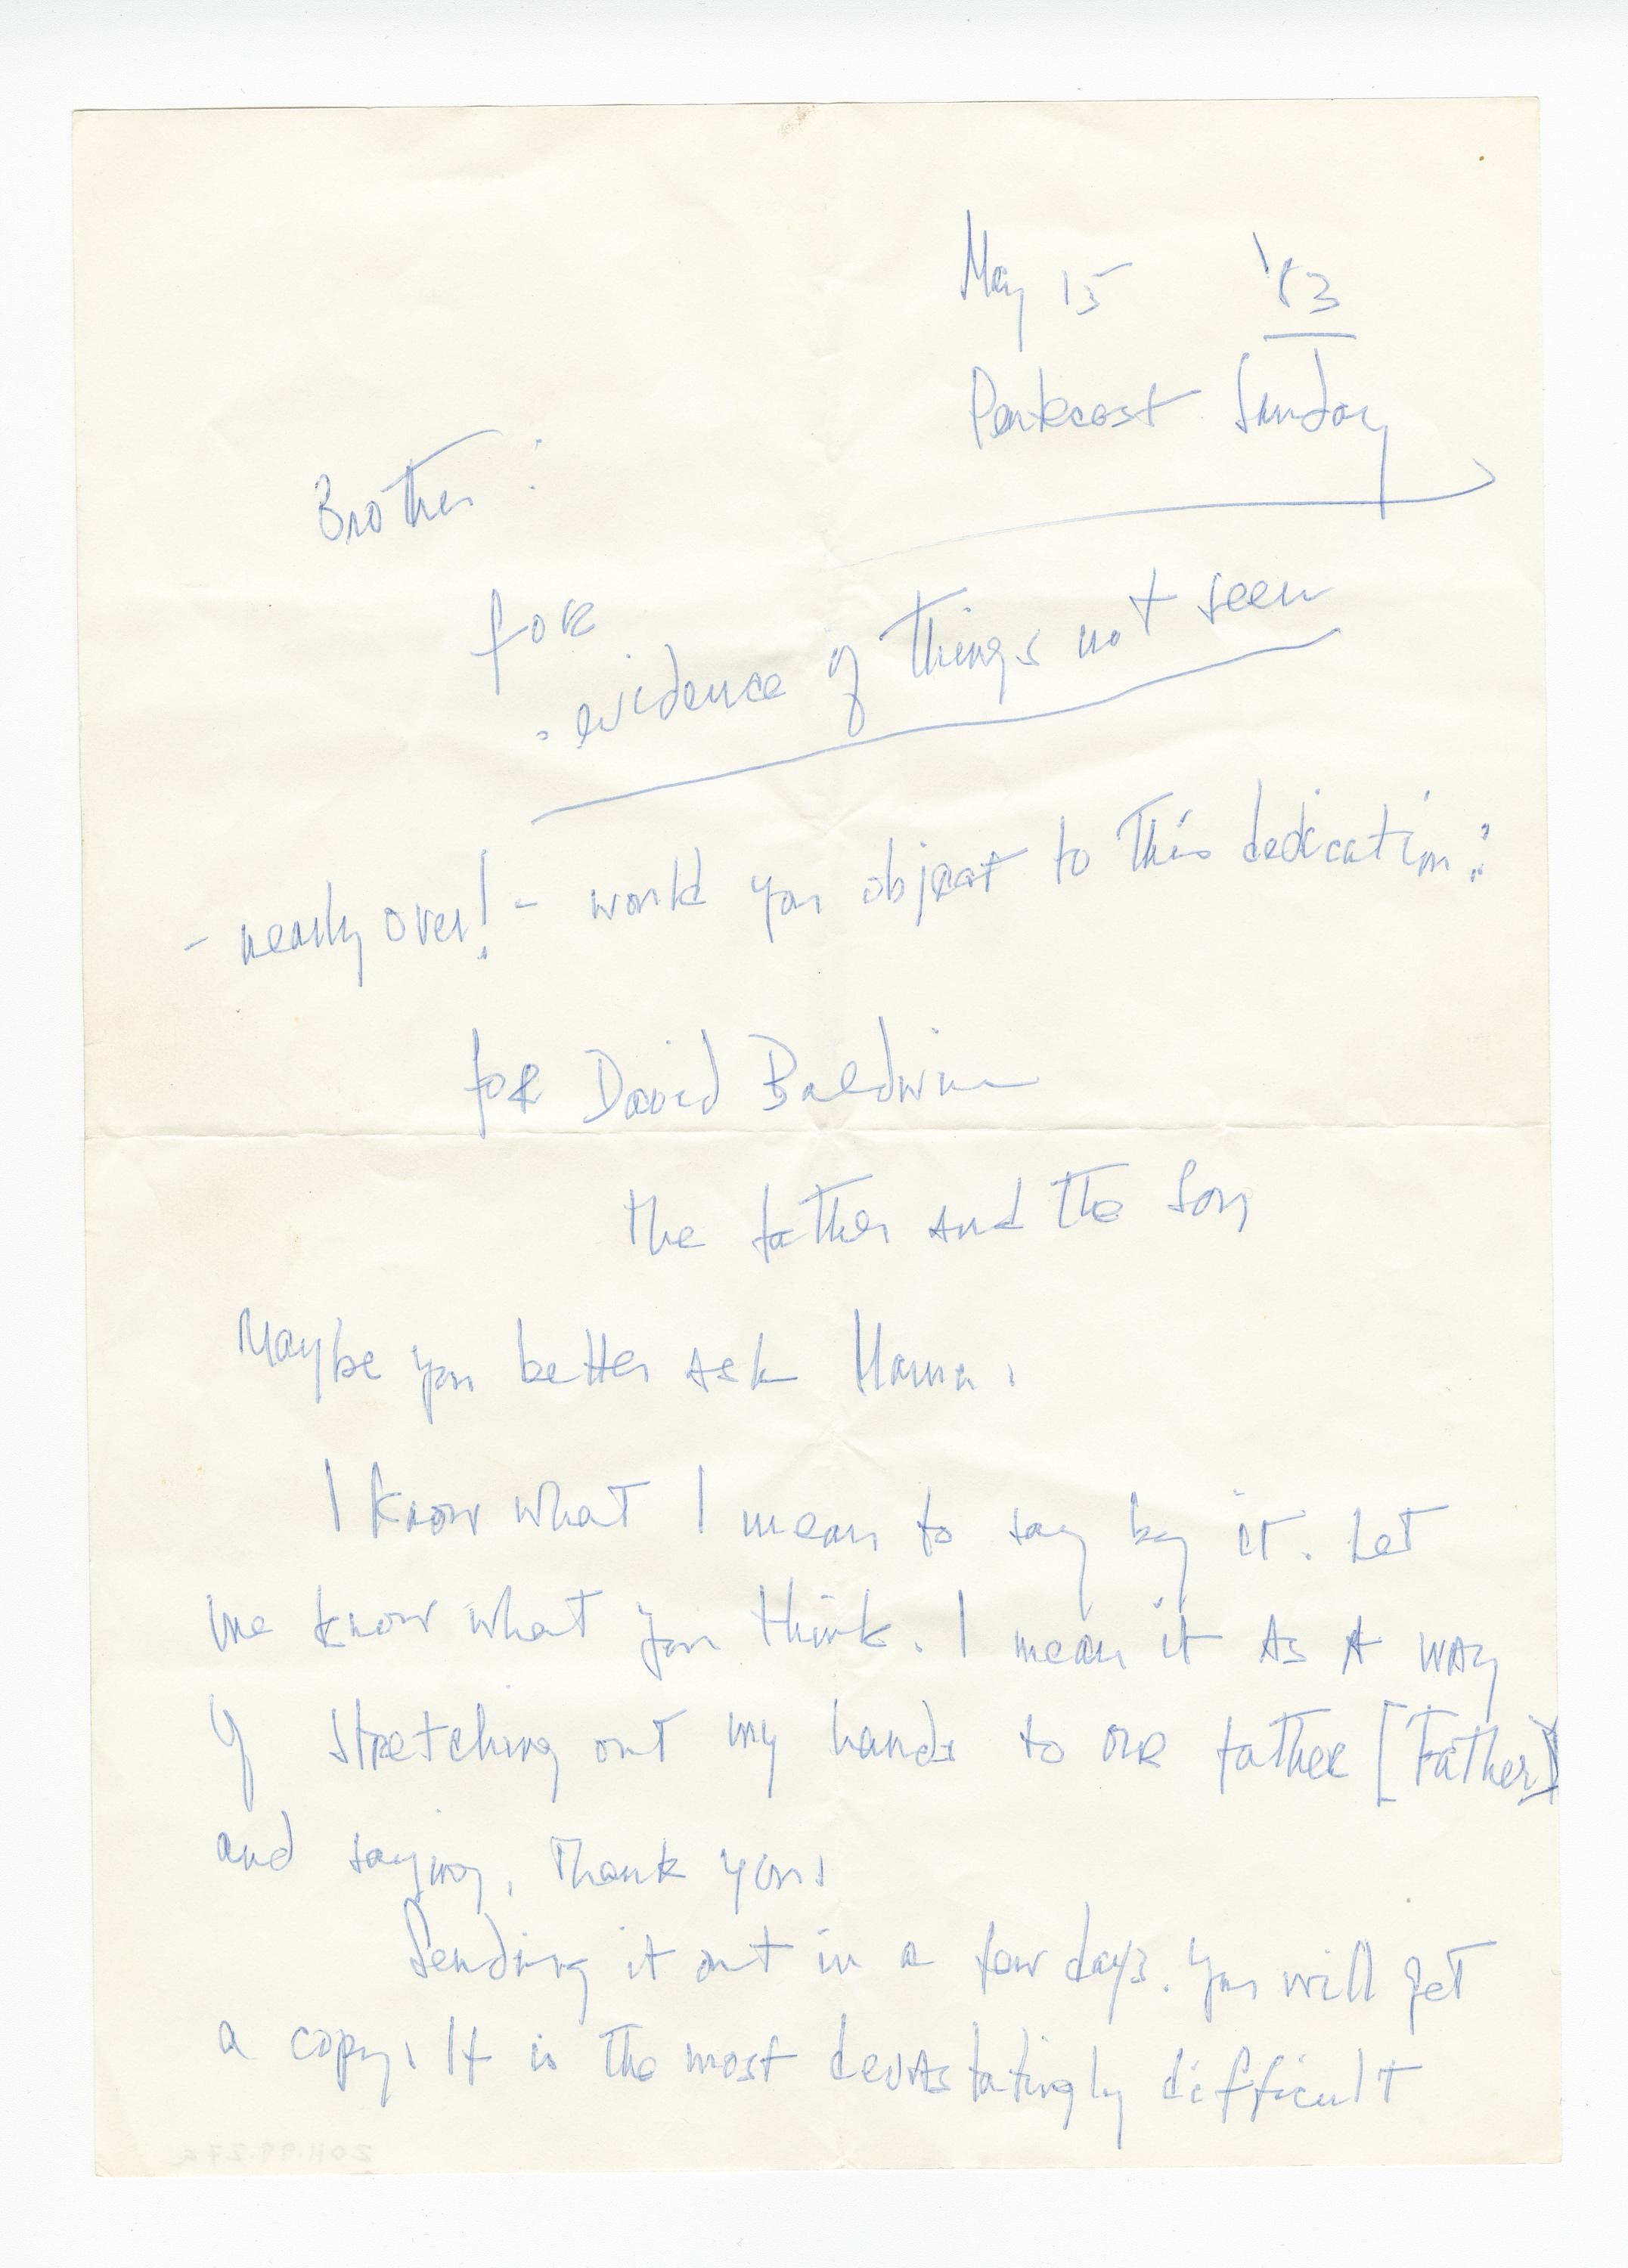 May 15 '83
Pentecost Sunday
Brother:
for
evidence of things not seen
- nearly over! - would you object to this dedication:
for David Baldwin
the father and the son
Maybe you better ask Mama.
I know what I mean to say by it. Let
me know what you think. I mean it as a way
of stretching out my hands to our father [Father]
and saying, thank you.
Sending it out in a few days. You will get
a copy. It is the most devastatingly difficult
2011.99.27a